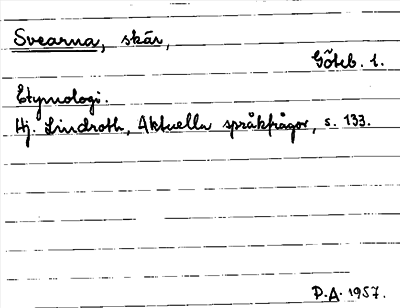 Svearna, skär,
Göteb. l.
Etymologi.
Hj. Lindroth, Aktuella språkfrågor, s. 133.
D.A. 1957.